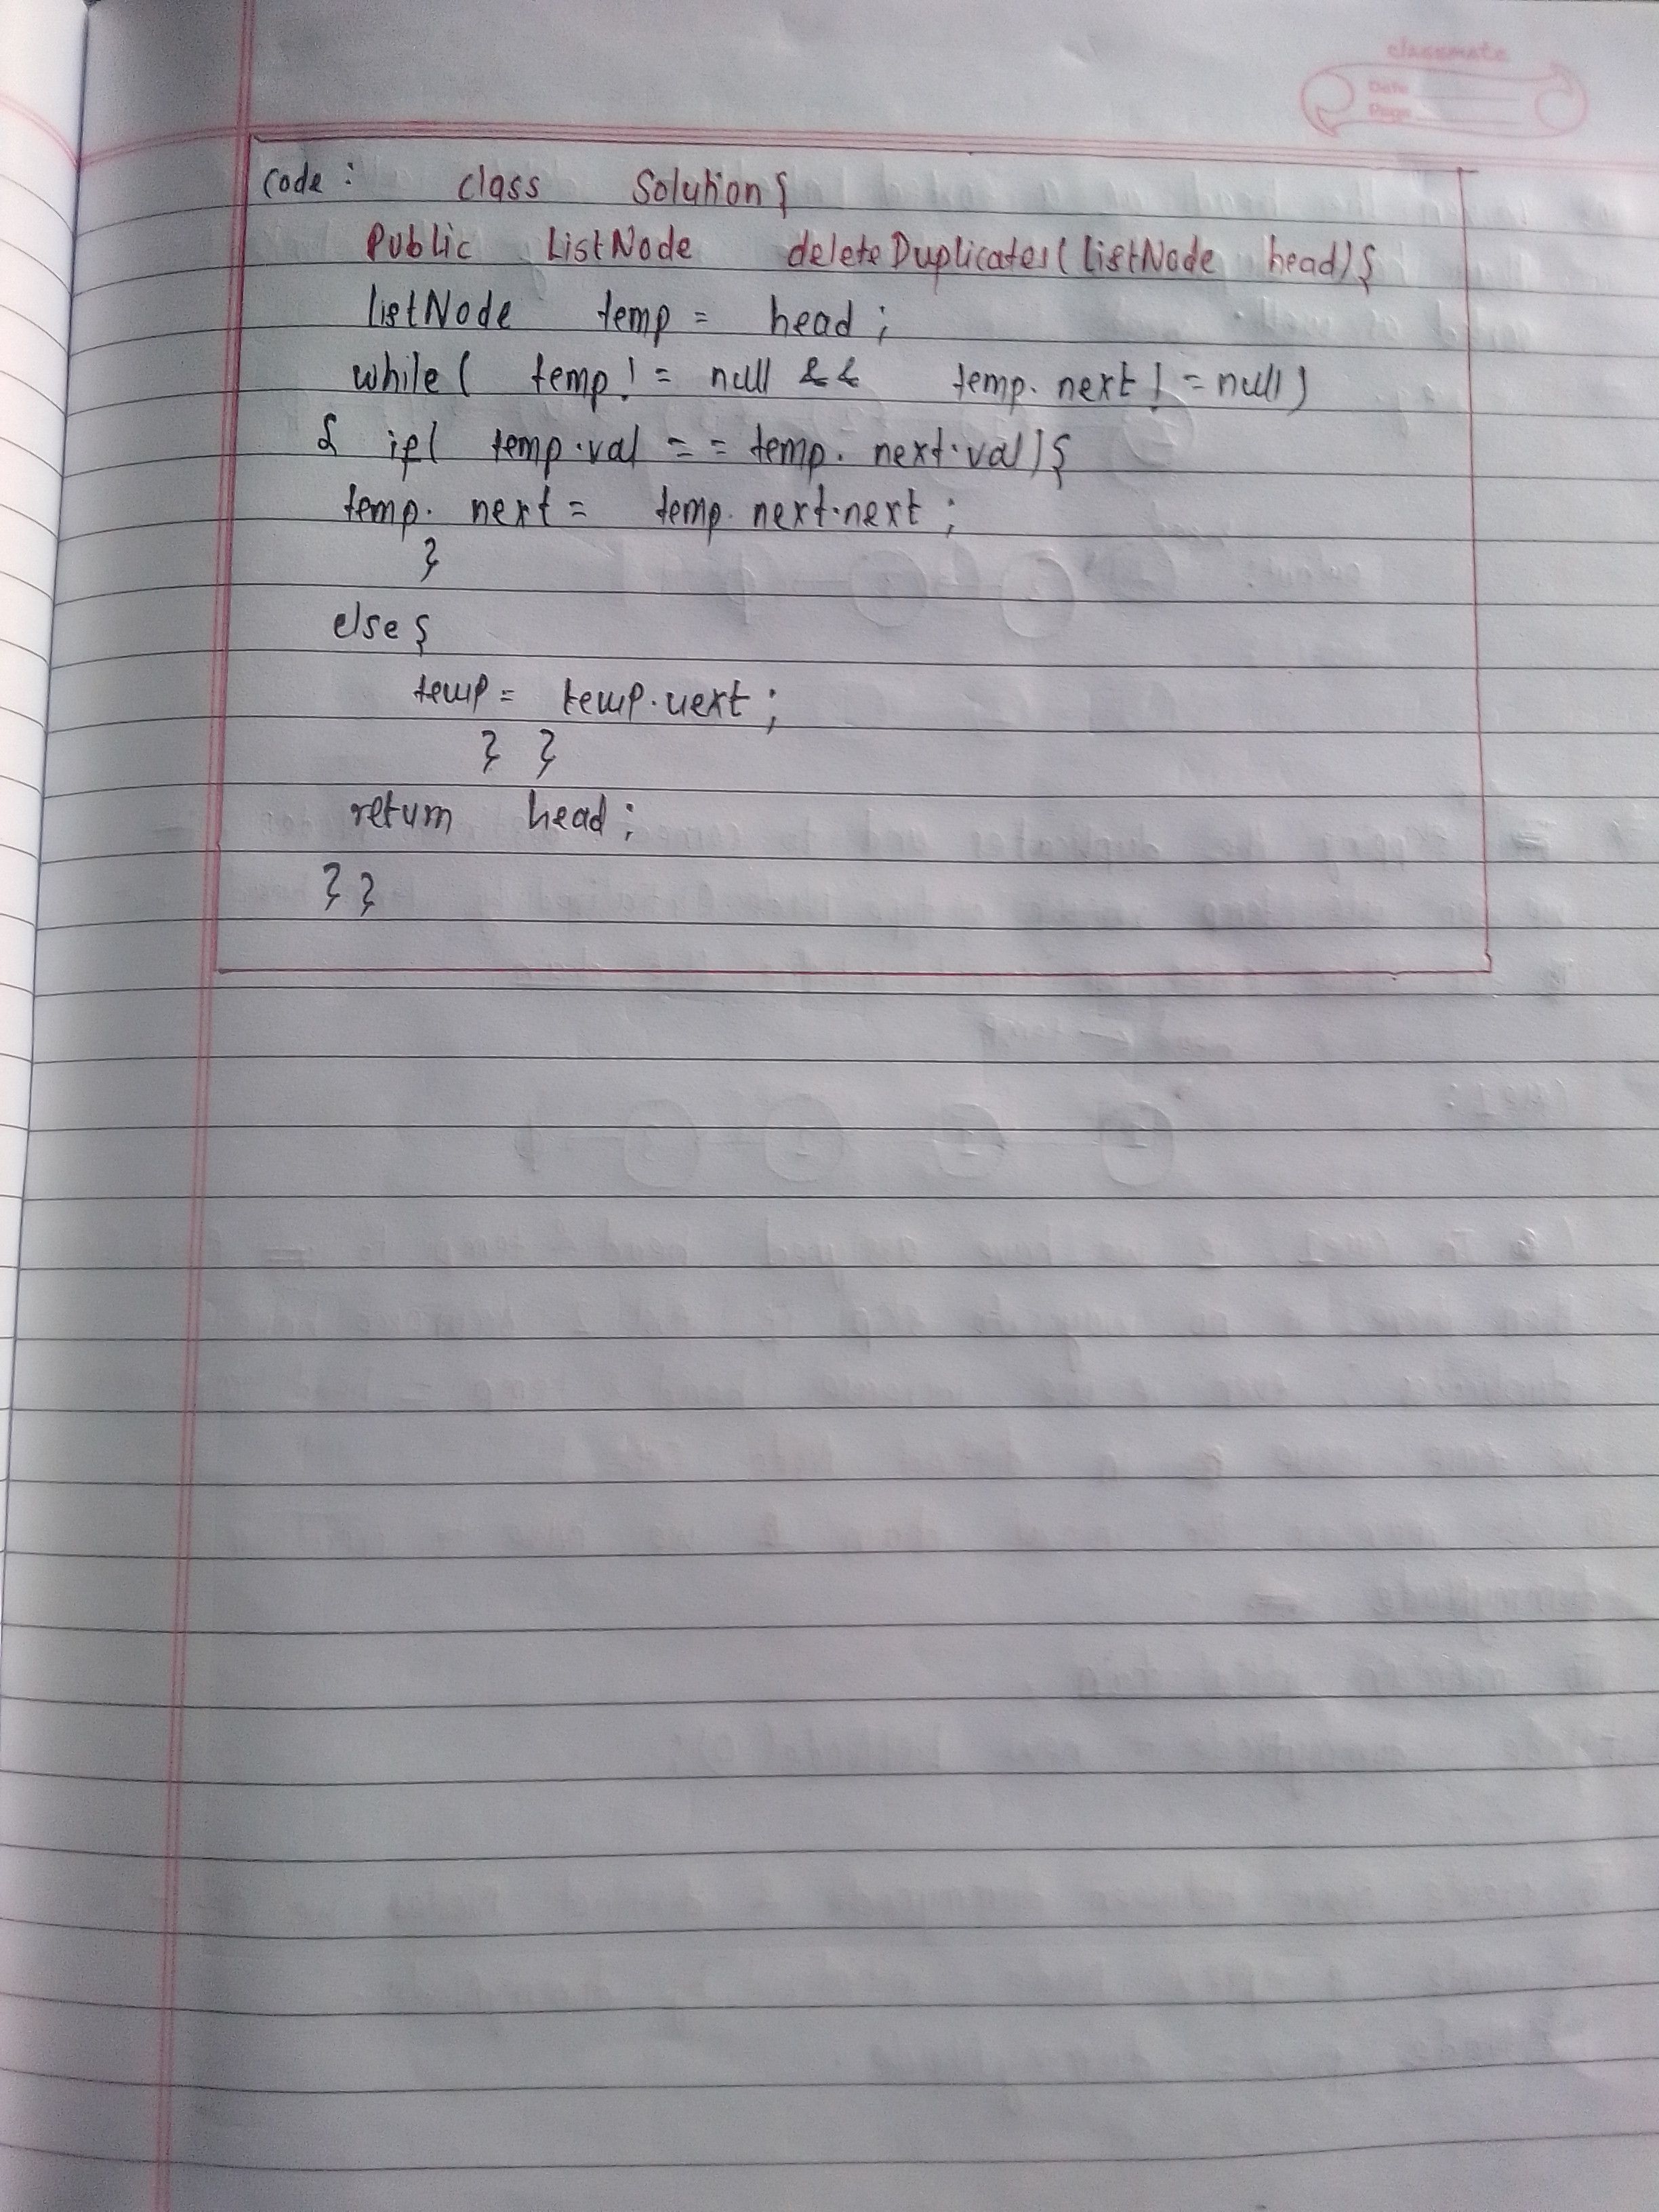 classmate
Date
Page
Code : class Solution{
Public ListNode deleteDuplicates(listNode head){
listNode temp = head ;
while( temp! = null && temp. next ! = null)
{ if( temp.val = = temp. next.val){
temp. next = temp. next.next ;
}
else {
temp = temp.next ;
} }
return head ;
} }